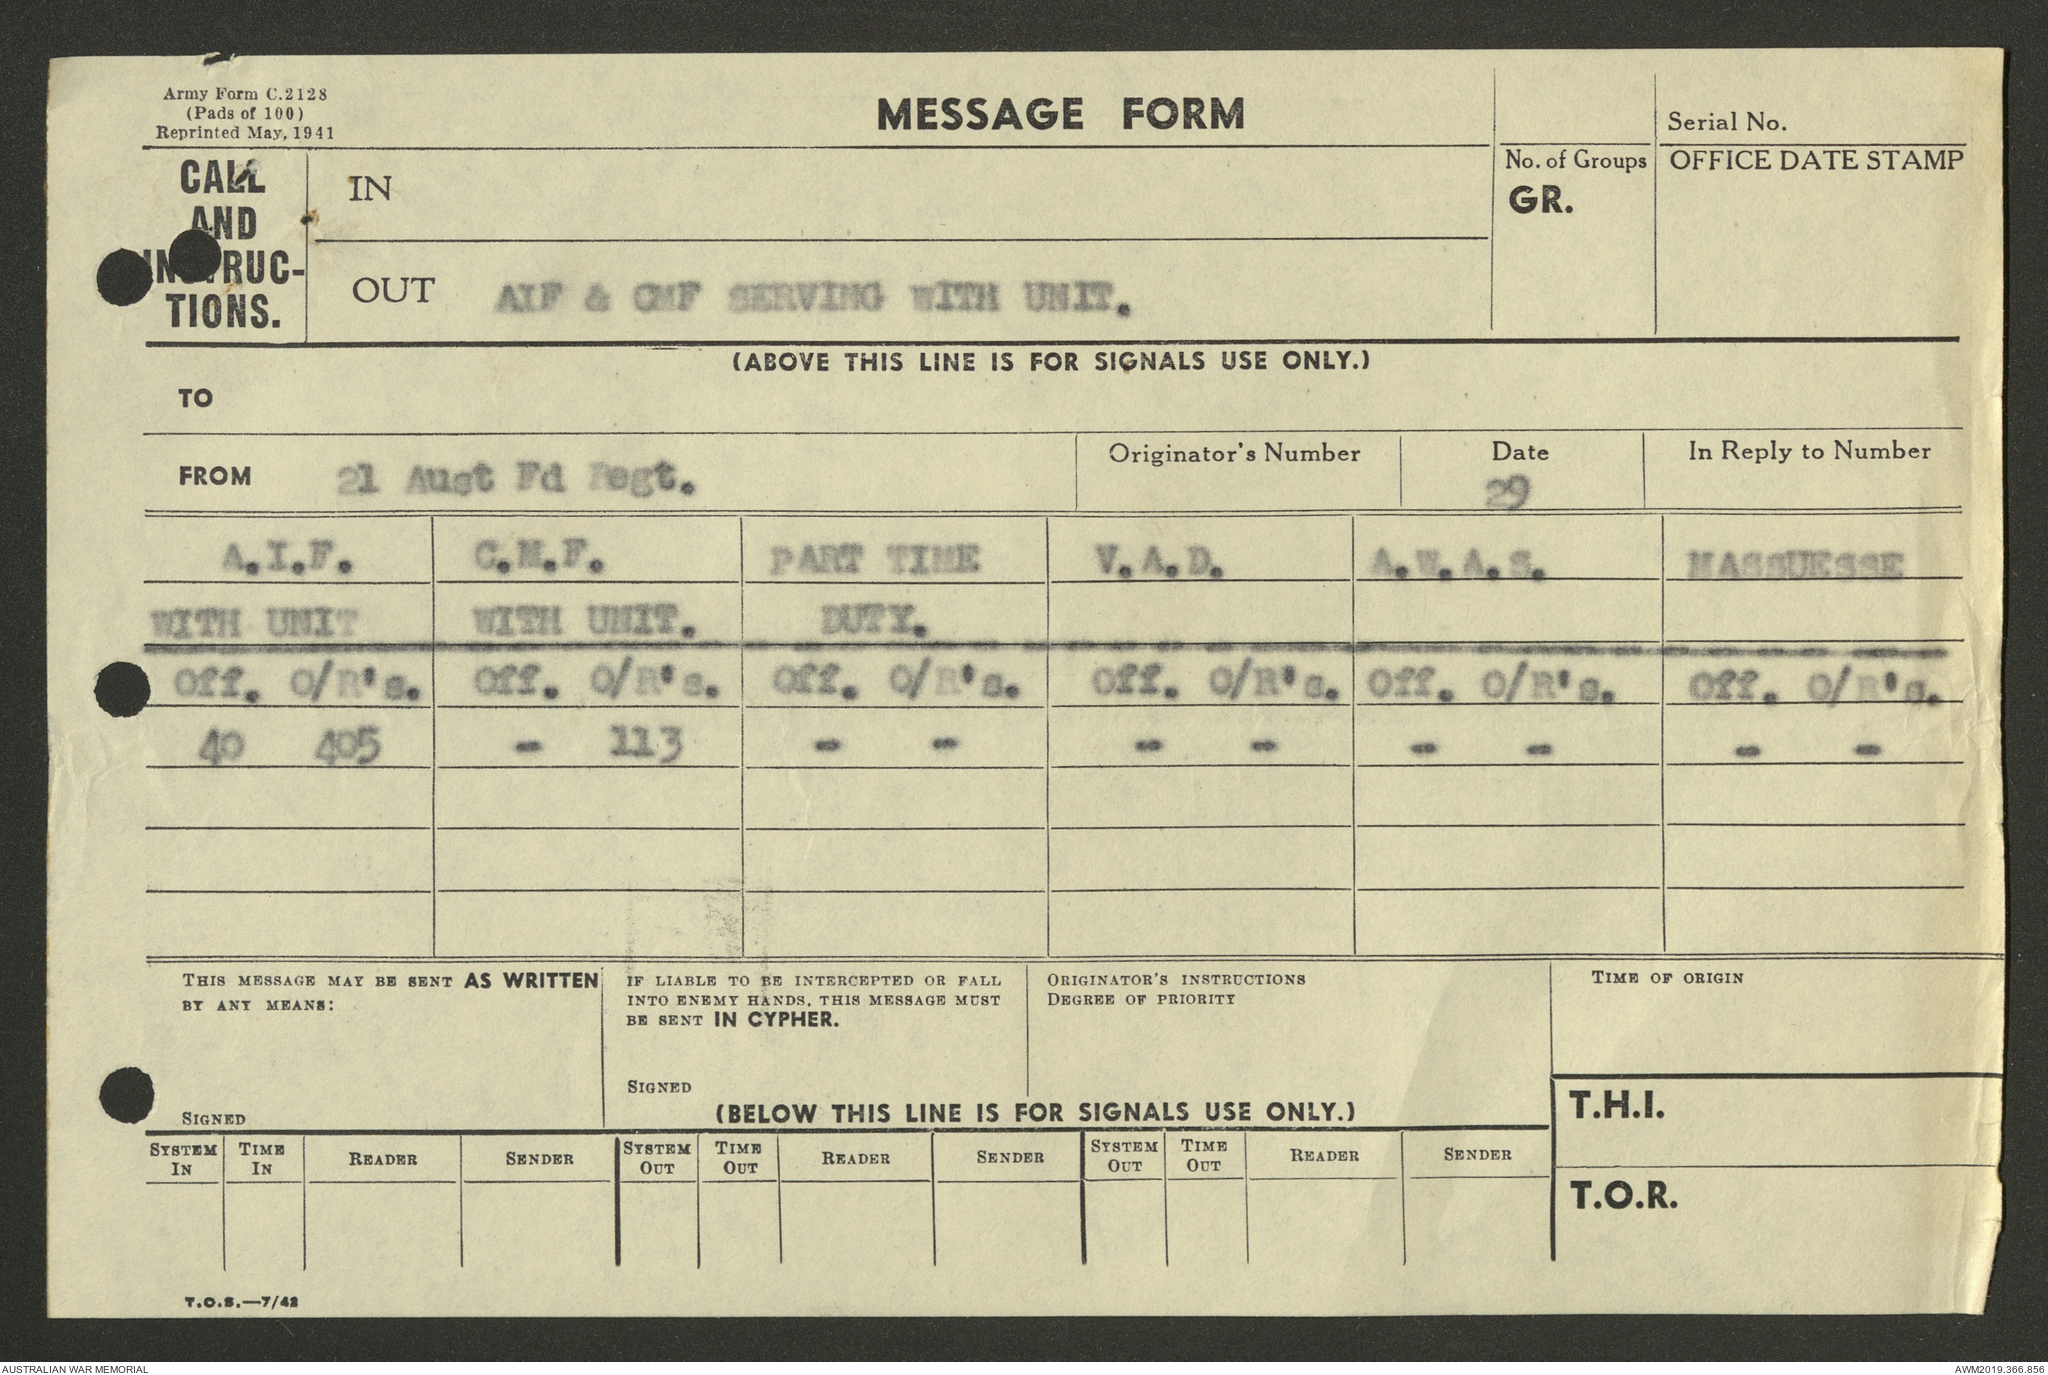 Army Form C.2128
(Pads of 100)
Reprinted May, 1941
MESSAGE FORM
Serial No.
CALL
AND
INSTRUC-
TIONS.
IN
No. of Groups
GR.
OFFICE DATE STAMP
OUT AIF & CMF SERVING WITH UNIT.
(ABOVE THIS LINE IS FOR SIGNALS USE ONLY.)
TO
FROM 21 Aust Fd Regt.
Originator's Number
Date
29
In Reply to Number
A.I.F. C.M.F. PART TIME V.A.D. A.W.A.S. MASSUESSE
WITH UNIT WITH UNIT. DUTY.
Off. O/R's. Off. O/R's. Off. O/R's. Off. O/R's. Off. O/R's. Off. O/R's.
40 405 - 113 - - - - - - - -
THIS MESSAGE MAY BE SENT AS WRITTEN
BY ANY MEANS:
SIGNED
IF LIABLE TO BE INTERCEPTED OR FALL
INTO ENEMY HANDS, THIS MESSAGE MUST
BE SENT IN CYPHER.
SIGNED
ORIGINATOR'S INSTRUCTIONS
DEGREE OF PRIORITY
TIME OF ORIGIN
(BELOW THIS LINE IS FOR SIGNALS USE ONLY.)
T.H.I.
SYSTEM IN TIME IN READER SENDER SYSTEM OUT TIME OUT READER SENDER SYSTEM OUT TIME OUT READER SENDER
T.O.R.
T.O.S.—7/42
AUSTRALIAN WAR MEMORIAL
AWM2019.366.856